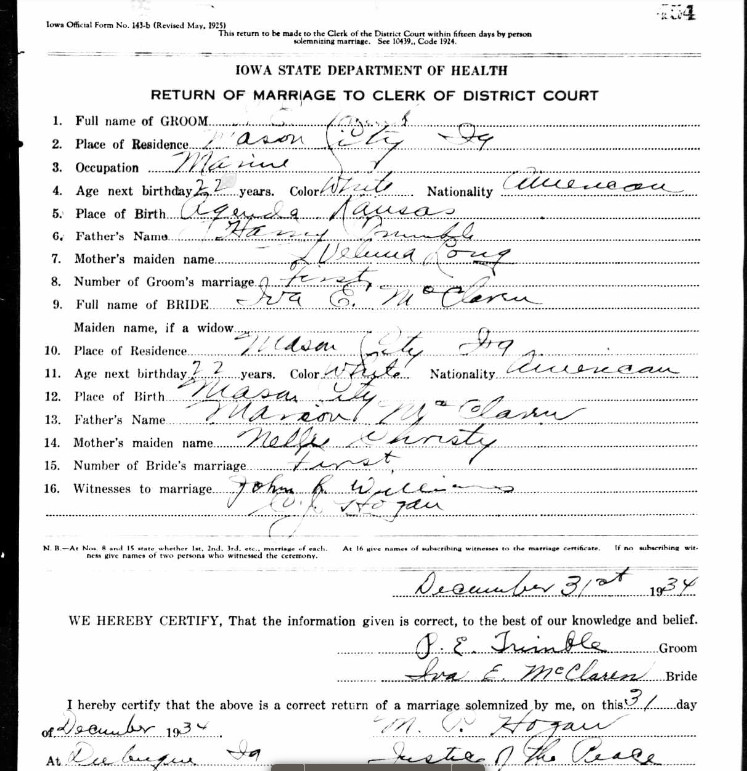 Iowa Official Form No. 143-b (Revised May, 1925)
This return to be made to the Clerk of the District Court within fifteen days by person
solemnizing marriage. See 10439,, Code 1924.
IOWA STATE DEPARTMENT OF HEALTH
RETURN OF MARRIAGE TO CLERK OF DISTRICT COURT
1. Full name of GROOM
2. Place of Residence Mason City Ia
3. Occupation Marine
4. Age next birthday 22 years. Color White Nationality American
5. Place of Birth Agenda Kansas
6. Father's Name Harry Trimble
7. Mother's maiden name Velma Long
8. Number of Groom's marriage first
9. Full name of BRIDE Iva E. McClaren
Maiden name, if a widow
10. Place of Residence Mason City Ia
11. Age next birthday 22 years. Color White Nationality American
12. Place of Birth Mason City
13. Father's Name Marion McClaren
14. Mother's maiden name Nellie Christy
15. Number of Bride's marriage First
16. Witnesses to marriage John R Williams
Hogan
N. B.—At Nos. 8 and 15 state whether 1st, 2nd, 3rd, etc., marriage of each. At 16 give names of subscribing witnesses to the marriage certificate. If no subscribing wit-
ness give names of two persons who witnessed the ceremony.
December 31st 1934
WE HEREBY CERTIFY, That the information given is correct, to the best of our knowledge and belief.
P. E. Trimble Groom
Iva E. McClaren Bride
I hereby certify that the above is a correct return of a marriage solemnized by me, on this 31 day
of December 1934 M. Hogan
At Dubuque Ia Justice of the Peace